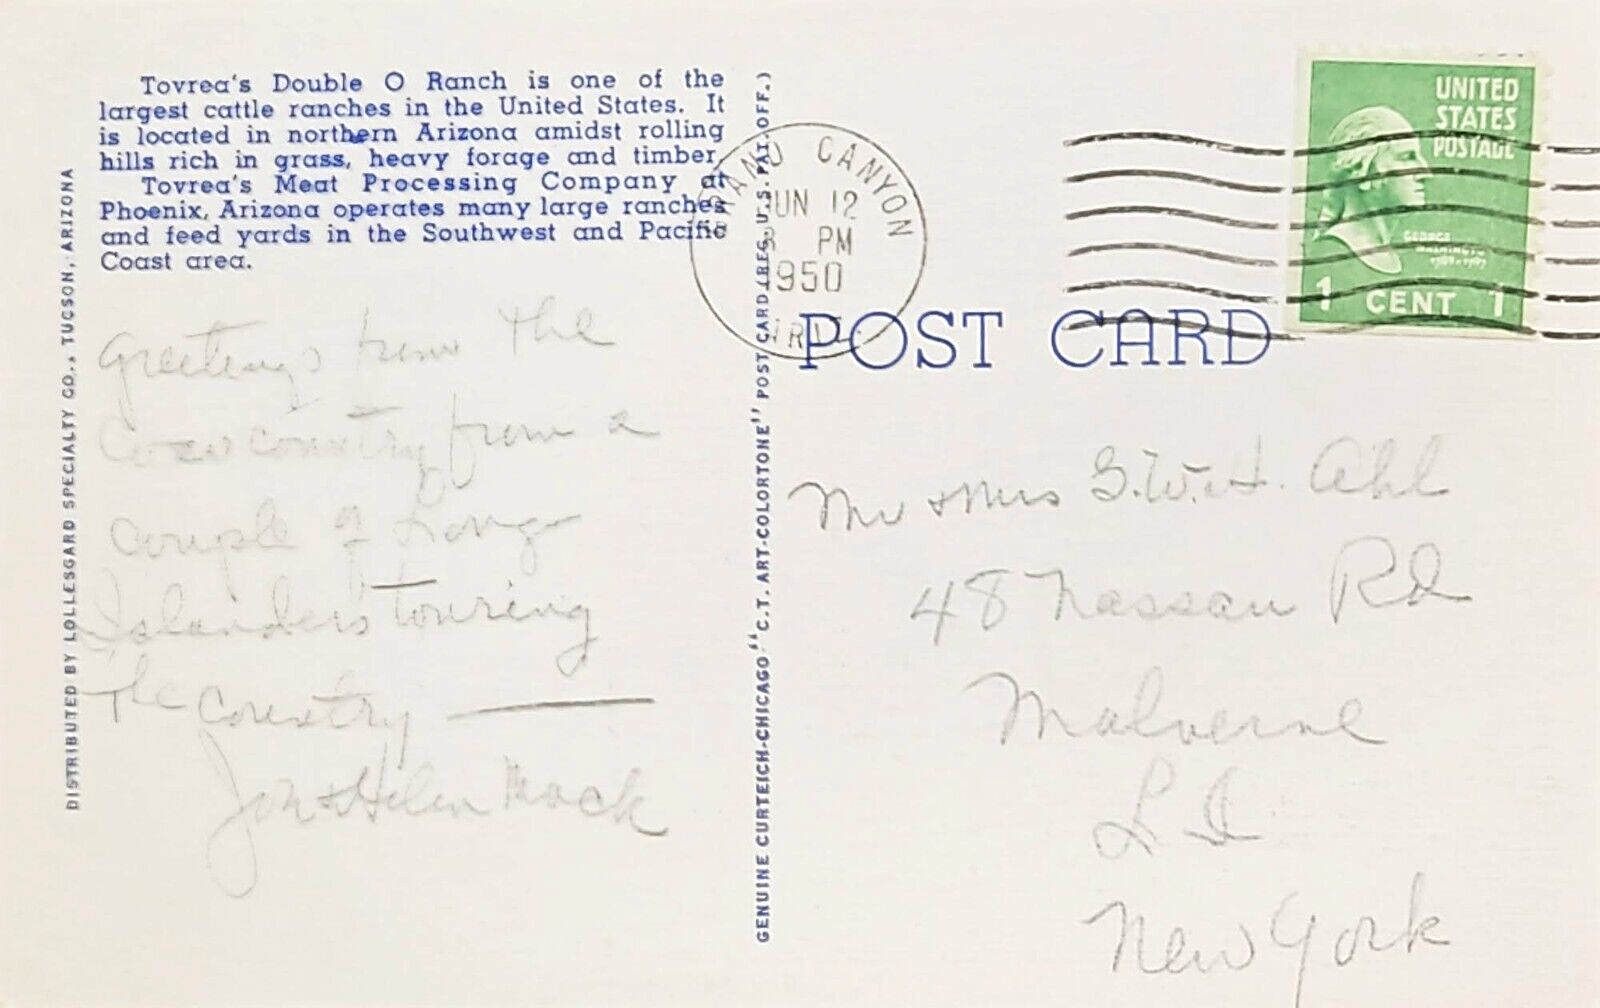 Tovrea's Double O Ranch is one of the
largest cattle ranches in the United States. It
is located in northern Arizona amidst rolling
hills rich in grass, heavy forage and timber.
Tovrea's Meat Processing Company at
Phoenix, Arizona operates many large ranches
and feed yards in the Southwest and Pacific
Coast area.
Greetings from the
Cow country from a
couple of Long
Islanders touring
the country —
Jon & Helen Mack
DISTRIBUTED BY LOLLESGARD SPECIALTY CO., TUCSON, ARIZONA
GENUINE CURTEICH-CHICAGO "C.T. ART-COLORTONE" POST CARD (REG. U.S. PAT. OFF.)
GRAND CANYON
JUN 12
PM
1950
ARIZ.
UNITED
STATES
POSTAGE
GEORGE
WASHINGTON
1 CENT 1
POST CARD
Mr & Mrs G.W.H. Ahl
48 Nassau Rd
Malverne
L I
New York